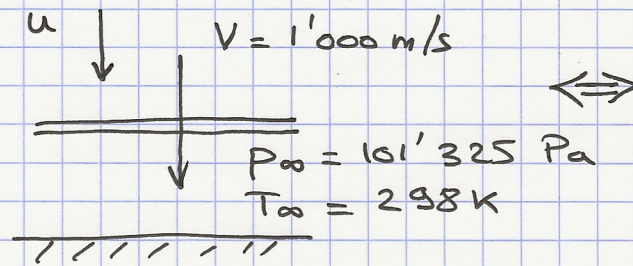 u
V = 1'000 m/s
p∞ = 101'325 Pa
T∞ = 298 K